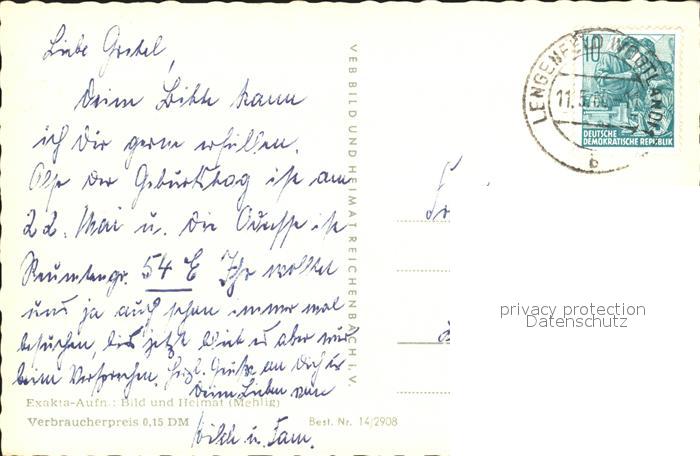 Liebe Gretel,
Deine Bitte kann
ich Dir gerne erfüllen.
Also der Geburtstag ist am
22. Mai u. die Adresse ist
54 E Ihr wolltet
uns ja auch schon immer mal
besuchen, bis jetzt blieb es aber nur
beim Versprechen. Herzl. Grüße an Dich u.
Deine Lieben von
u. Fam.
Exakta-Aufn.: Bild und Heimat (Mehlig)
Verbraucherpreis 0,15 DM Best. Nr. 14/2908
VEB BILD UND HEIMAT REICHENBACH I. V.
LENGENFELD (VOGTLAND)
b
10
DEUTSCHE
DEMOKRATISCHE REPUBLIK
privacy protection
Datenschutz